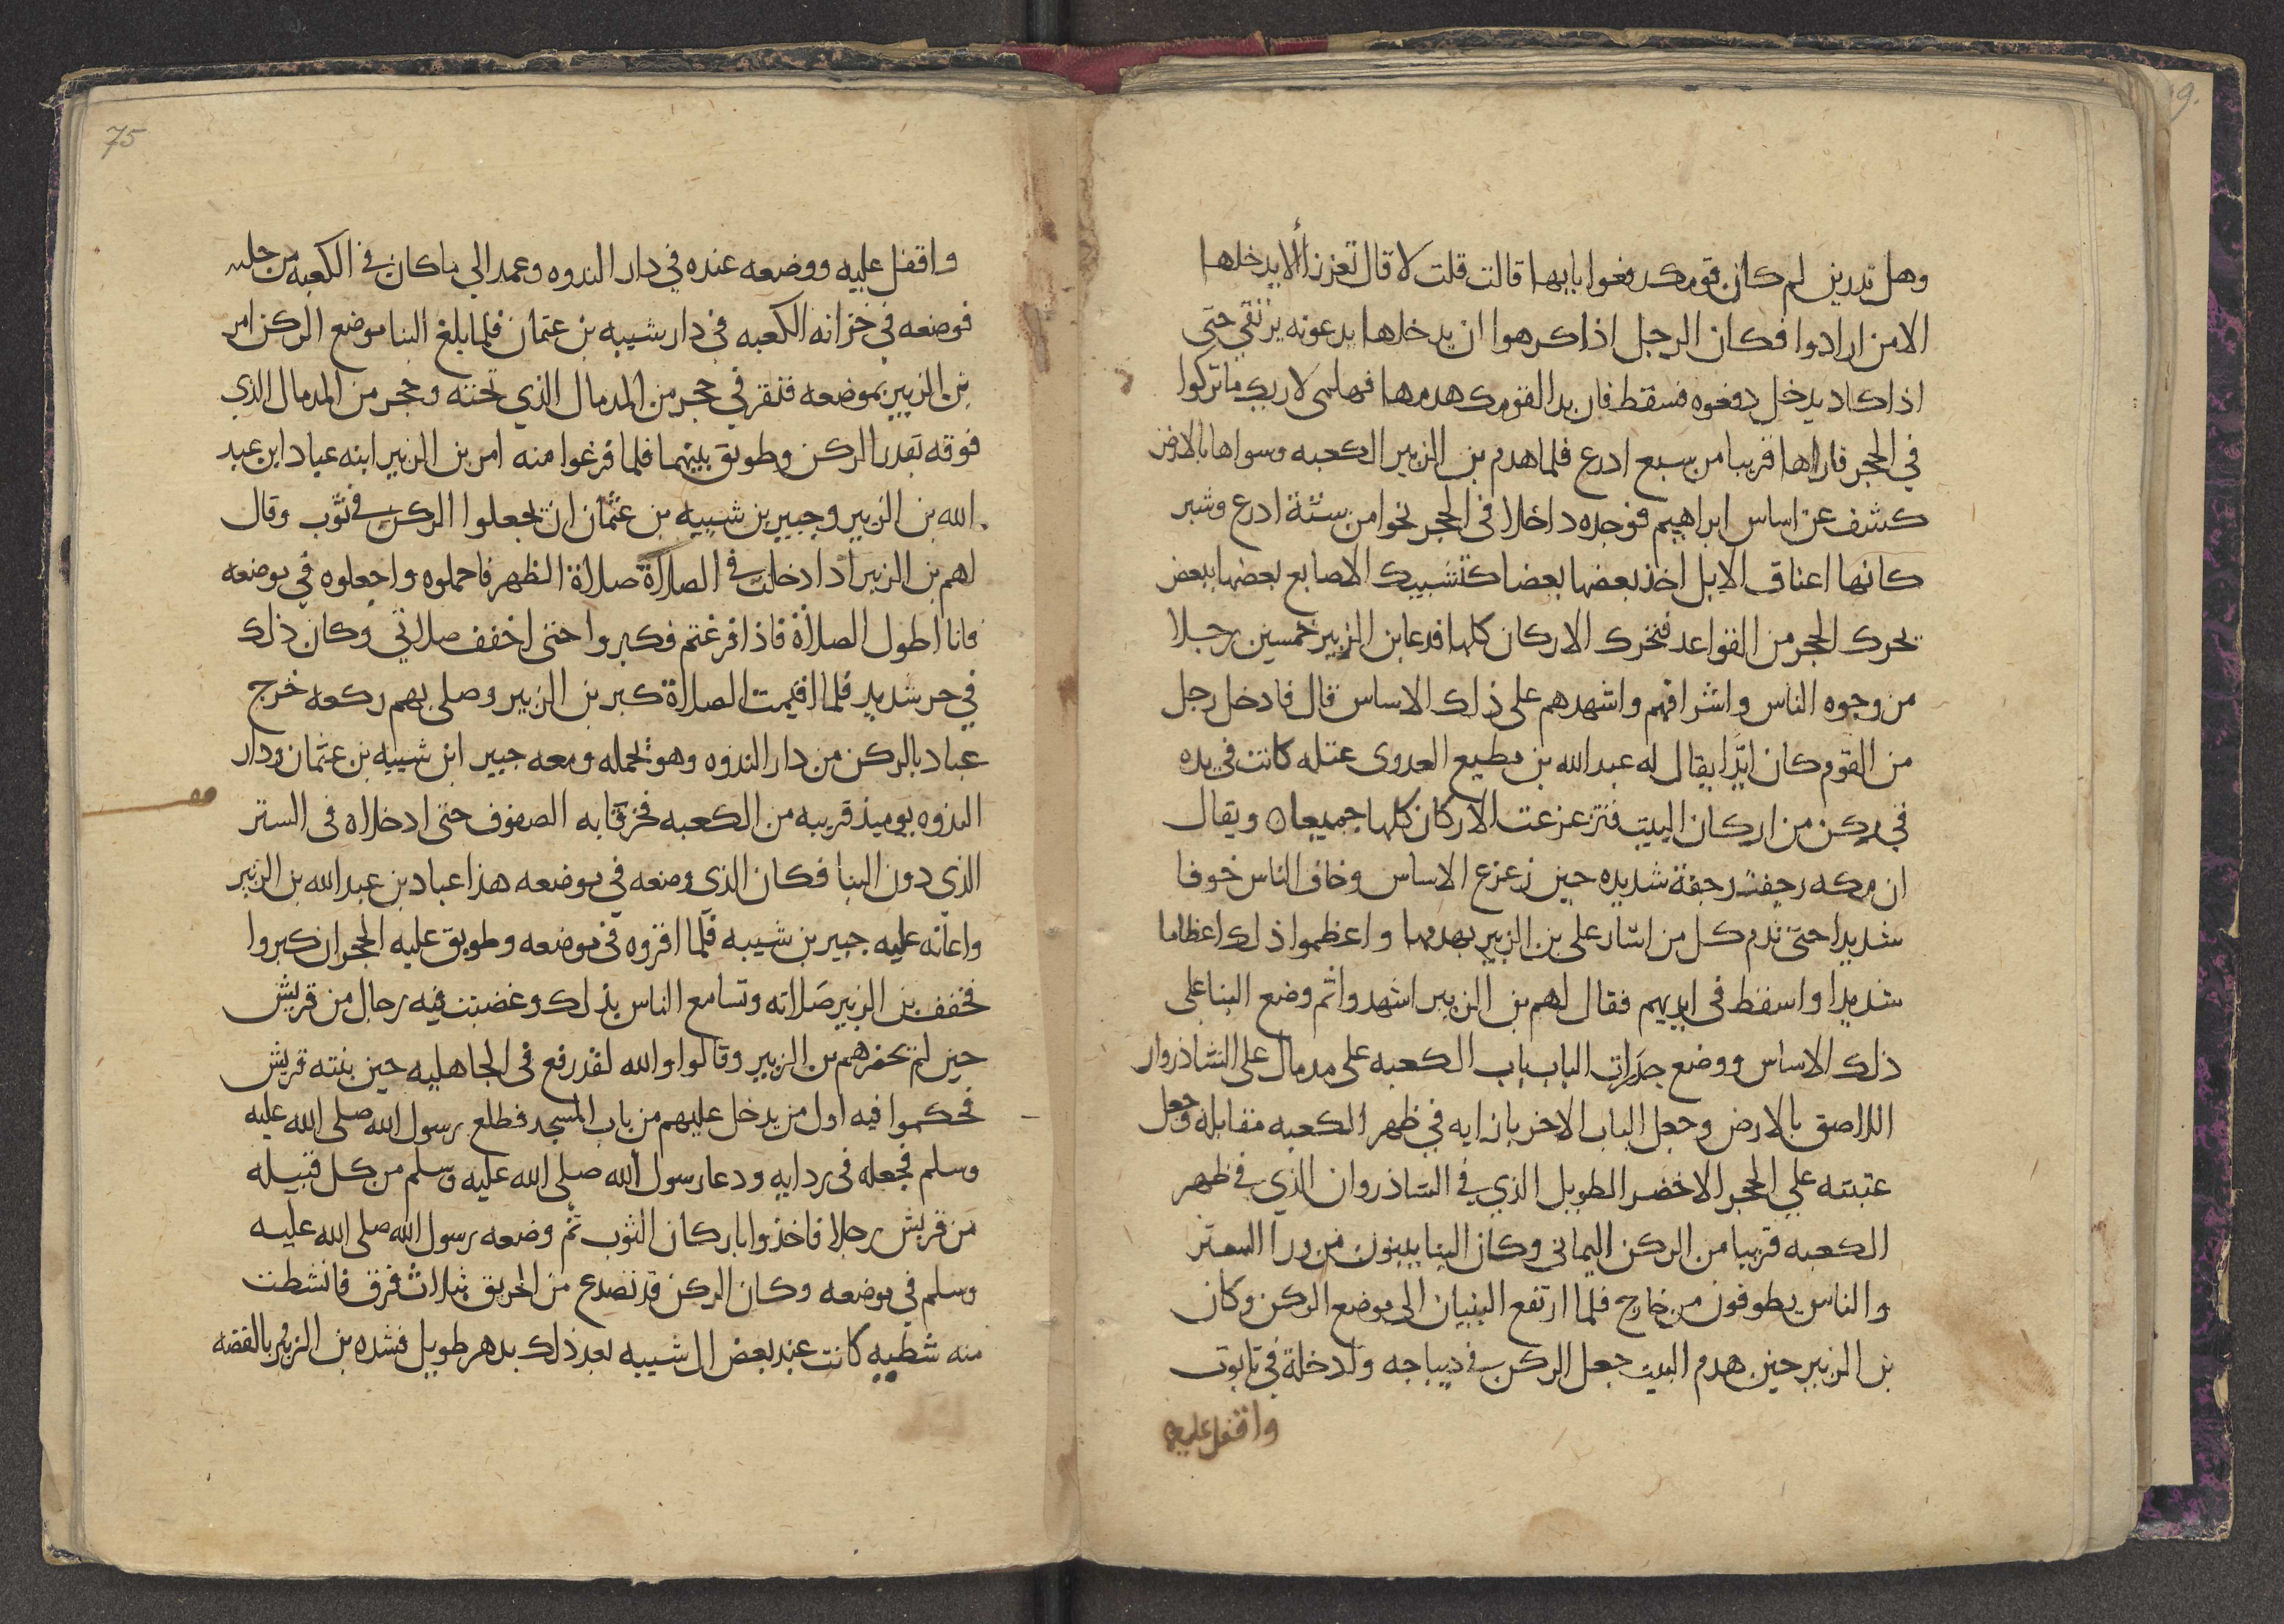 وهل تدرين لم كان قومك رفعوا بابها قالت قلت لا قال تعززا ألا يدخلها
الا من ارادوا فكان الرجل اذا كرهوا ان يدخلها يدعونه يرتقي حتى
اذا كاد يدخل دفعوه فسقط فان بدا لقومك هدمها فهلمى لاريك ما تركوا
في الحجر فاراها قريبا من سبع ادرع فلما هدم بن الزبير الكعبه وسواها بالارض
كشف عن اساس ابراهيم فوجده داخلا في الحجر نحوا من ستة ادرع وشبر
كانها اعناق الابل اخذ بعضها بعضا كتشبيك الاصابع بعضها ببعض
تحرك الحجر من القواعد فتحرك الاركان كلها فدعا بن الزبير خمسين رجلا
من وجوه الناس واشرافهم واشهدهم على ذلك الاساس قال فادخل رجل
من القوم كان ايدا يقال له عبد الله بن مطيع العدوى عتله كانت في يده
في ركن من اركان البيت فتزعزعت الاركان كلها جميعا ويقال
ان مكه رجفت رجفة شديده حين زعزع الاساس وخاف الناس خوفا
شديدا حتى ندم كل من اشار على بن الزبير بهدمها واعظموا ذلك اعظاما
شديدا واسقط في ايديهم فقال لهم بن الزبير اشهدوا ثم وضع البنا على
ذلك الاساس ووضع جدرات الباب باب الكعبه على مدماك على الشاذروان
اللاصق بالارض وجعل الباب الاخر بازايه في ظهر الكعبه مقابله وجعل
عتبته علي الحجر الاخضر الطويل الذي في الشاذروان الذي في ظهر
الكعبه قريبا من الركن اليماني وكان البنا يبنون من ورا الستر
والناس يطوفون من خارج فلما ارتفع البنيان الى موضع الركن وكان
بن الزبير حين هدم البيت جعل الركن في ديباجه وادخله في تابوت
واقفل عليه
75
واقفل عليه ووضعه عنده في دار الندوه وعمد الي ما كان في الكعبه من حليه
فوضعه في خزانه الكعبه في دار شيبه بن عثمان فلما بلغ البنا موضع الركن امر
بن الزبير بموضعه فنقر في حجر من المدماك الذي تحته وحجر من المدماك الذي
فوقه بقدر الركن وطوبق بينهما فلما فرغوا منه امر بن الزبير ابنه عباد ابن عبد
الله بن الزبير وجبير بن شيبه بن عثمان ان يجعلوا الركن في ثوب وقال
لهم بن الزبير اذا دخلت في الصلاة صلاة الظهر فاحملوه واجعلوه في موضعه
فانا اطول الصلاة فاذا فرغتم فكبروا حتى اخفف صلاتي وكان ذلك
في حر شديد فلما اقيمت الصلاة كبر بن الزبير وصلى بهم ركعه خرج
عباد بالركن من دار الندوه وهو يحمله ومعه جبير ابن شيبه بن عثمان ودار
الندوه يوميذ قريبه من الكعبه فخرقا به الصفوف حتى ادخلاه في الستر
الذي دون البنا فكان الذي وضعه في موضعه هذا عباد بن عبد الله بن الزبير
واعانه عليه جبير بن شيبه فلما اقروه في موضعه وطوبق عليه الحجران كبروا
فخفف بن الزبير صلاته وتسامع الناس بذلك وغضبت فيه رجال من قريش
حين لم يحضرهم بن الزبير وقالوا والله لقد رفع في الجاهليه حين بنته قريش
فحكموا فيه اول من يدخل عليهم من باب المسجد فطلع رسول الله صلى الله عليه
وسلم فجعله في ردايه ودعا رسول الله صلى الله عليه وسلم من كل قبيله
من قريش رجلا فاخذوا باركان الثوب ثم وضعه رسول الله صلى الله عليه
وسلم في موضعه وكان الركن قد تصدع من الحريق بثلاث فرق فانشطت
منه شظيه كانت عند بعض ال شيبه بعد ذلك بدهر طويل فشده بن الزبير بالفضه